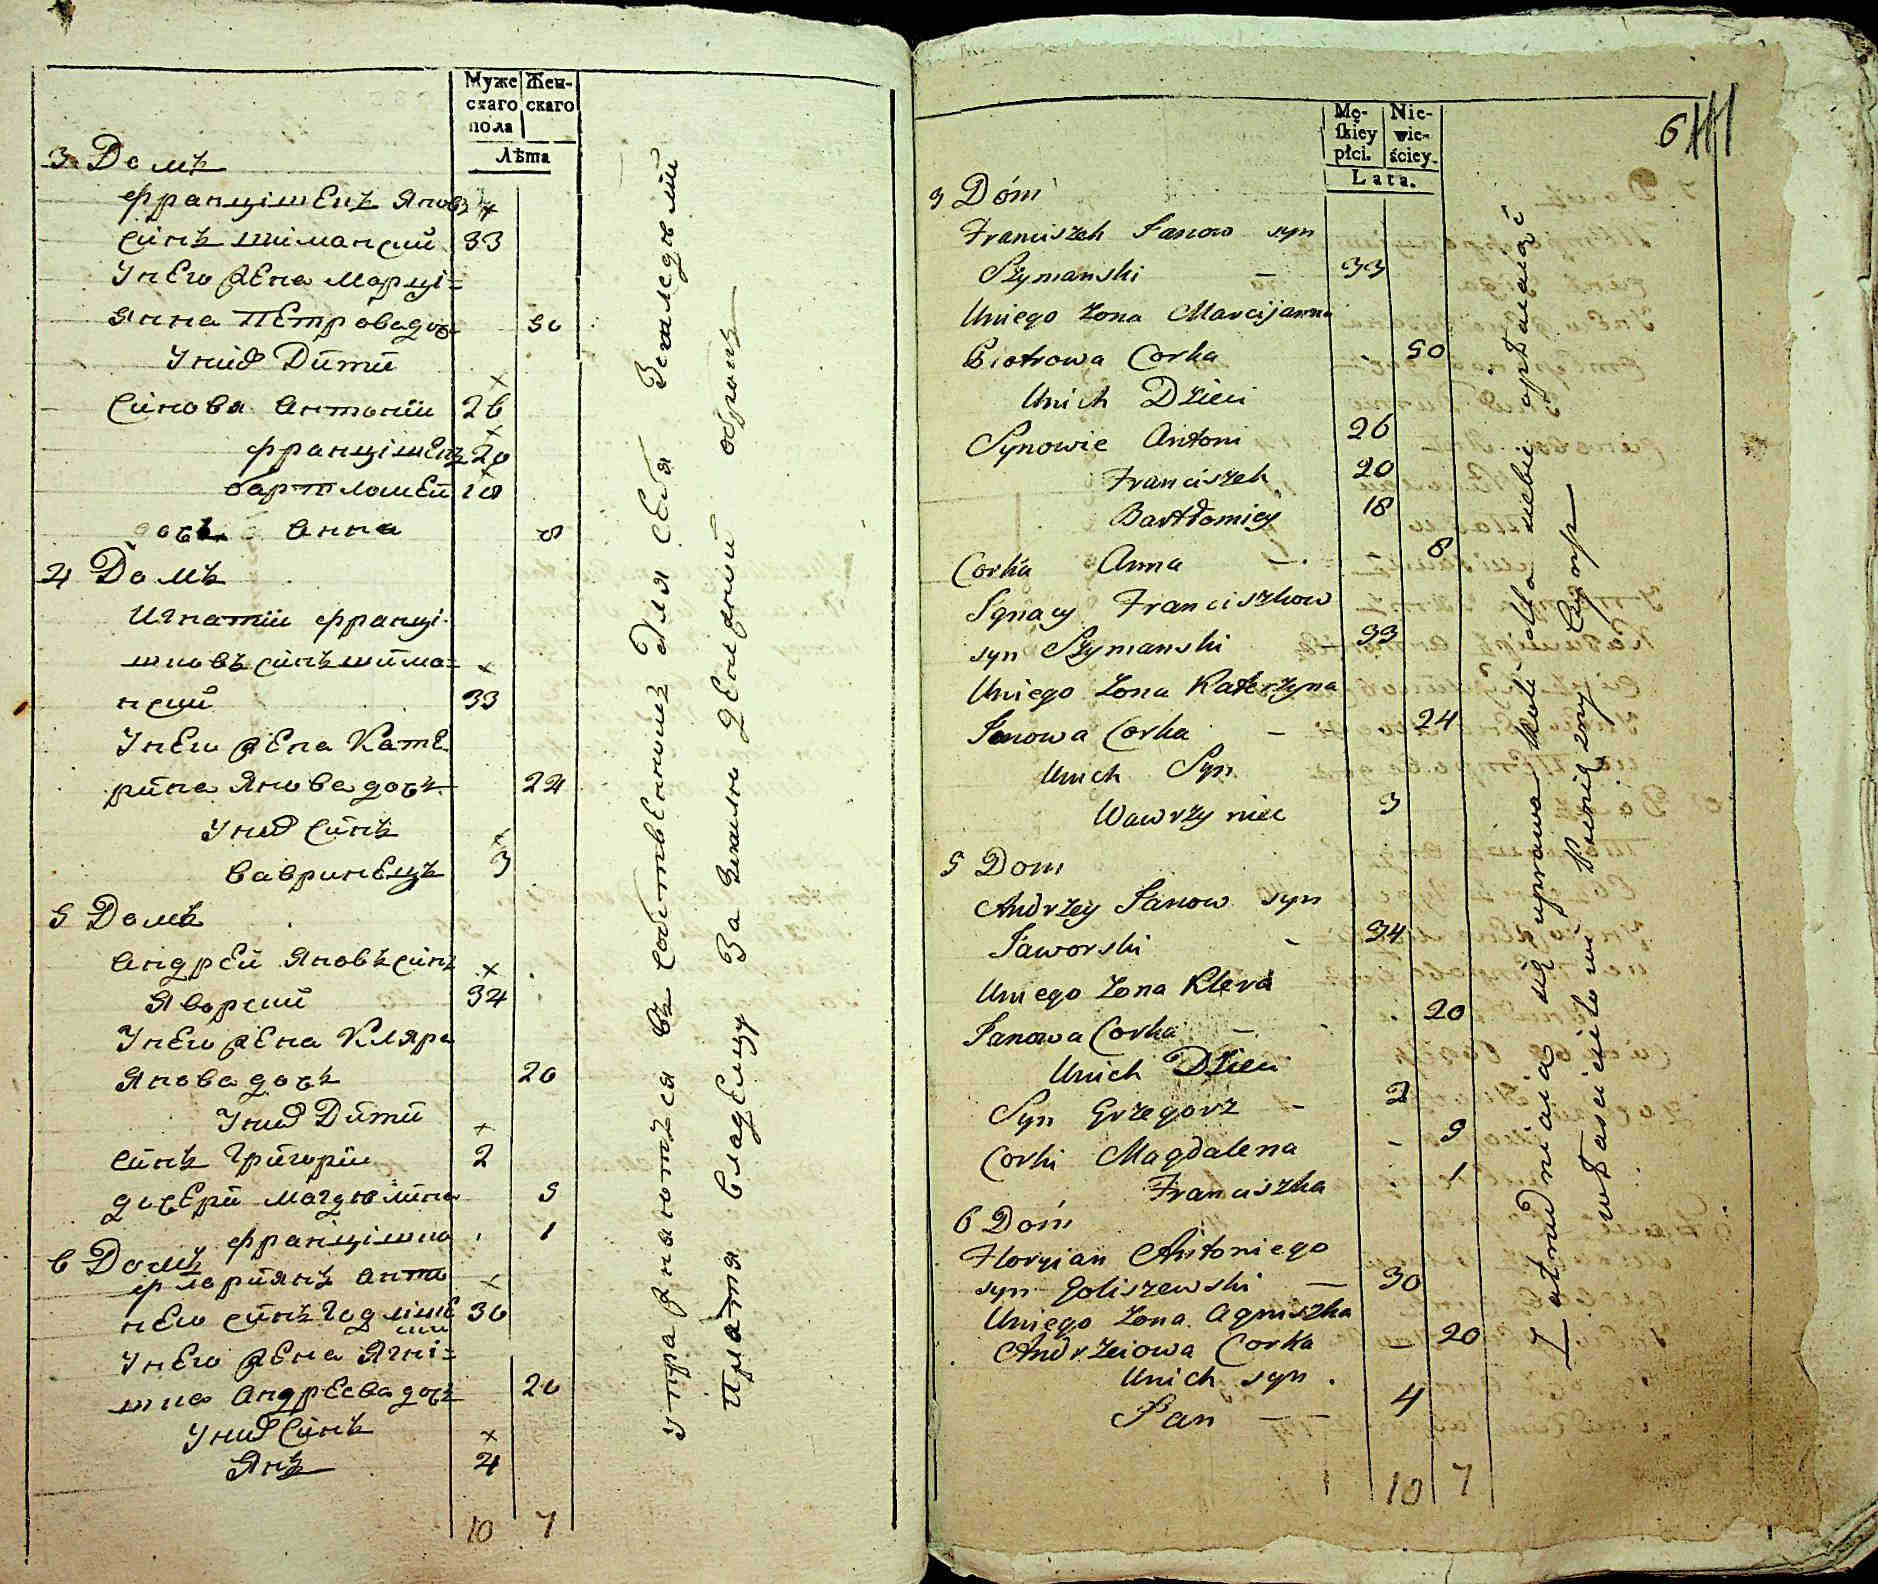 Муже Жен-
скаго скаго
пола
Лѣта
3 Домъ
Францишекъ Яновъ
синъ Шиманский 33
У него жена Марци=
янна Петрова дочь 50
У нихъ Дити
Синовя Антоній 26
Францишекъ 20
Бартломей 18
дочь Анна 8
4 Домъ
Игнатій Франци
шковъ синъ Шима=
нский 33
У него жена Кате
рина Янова дочь 24
У нихъ синъ
Вавринецъ 3
5 Домъ
Андрей Яновъ синъ
Яворский 34
У него жена Кляра
Янова дочь 20
У нихъ Дити
Синъ Григорій 2
дочери Магдолина 5
Францишка 1
6 Домъ
Флориянъ Анто
него синъ 30
У него жена Ягни=
шка Андреева дочь 20
У нихъ Синъ
Янъ 4
10 7
упражнаются въ собственномъ для себя
платя владелцу За Землю денежный оброкъ
6
Mę- Nie-
skiey wie-
płci. ściey.
Lata.
3 Dóm
Franciszek Janow syn
Szymanski – 33
Uniego Zona Marcijanna
Piotrowa Corka - 50
Unich Dzieci
Synowie Antoni 26
Franciszek 20
Bartłomiey 18
Corka Anna – . 8
Ignacy Franciszkow
syn Szymanski 33
Uniego Zona Katerzyna
Janowa Corka – 24
Unich Syn
Wawrzyniec 3
5 Dom
Andrzey Janow syn
Jaworski - 34
Uniego Zona Klara
Janowa Corka – 20
Unich Dzieci
Syn Grzegorz - 2
Corki Magdalena - 5
Franciszka 1
6 Dom
Floryian Antoniego
syn Goliszewski — 30
Uniego Zona Agniszka
Andrzeiowa Corka – 20
Unich syn .
Jan — – 4
10 7
Zatrudniaia się uprawa Roli dla siebie opłaiąć
włascicielowi Pienięzny Czynsz